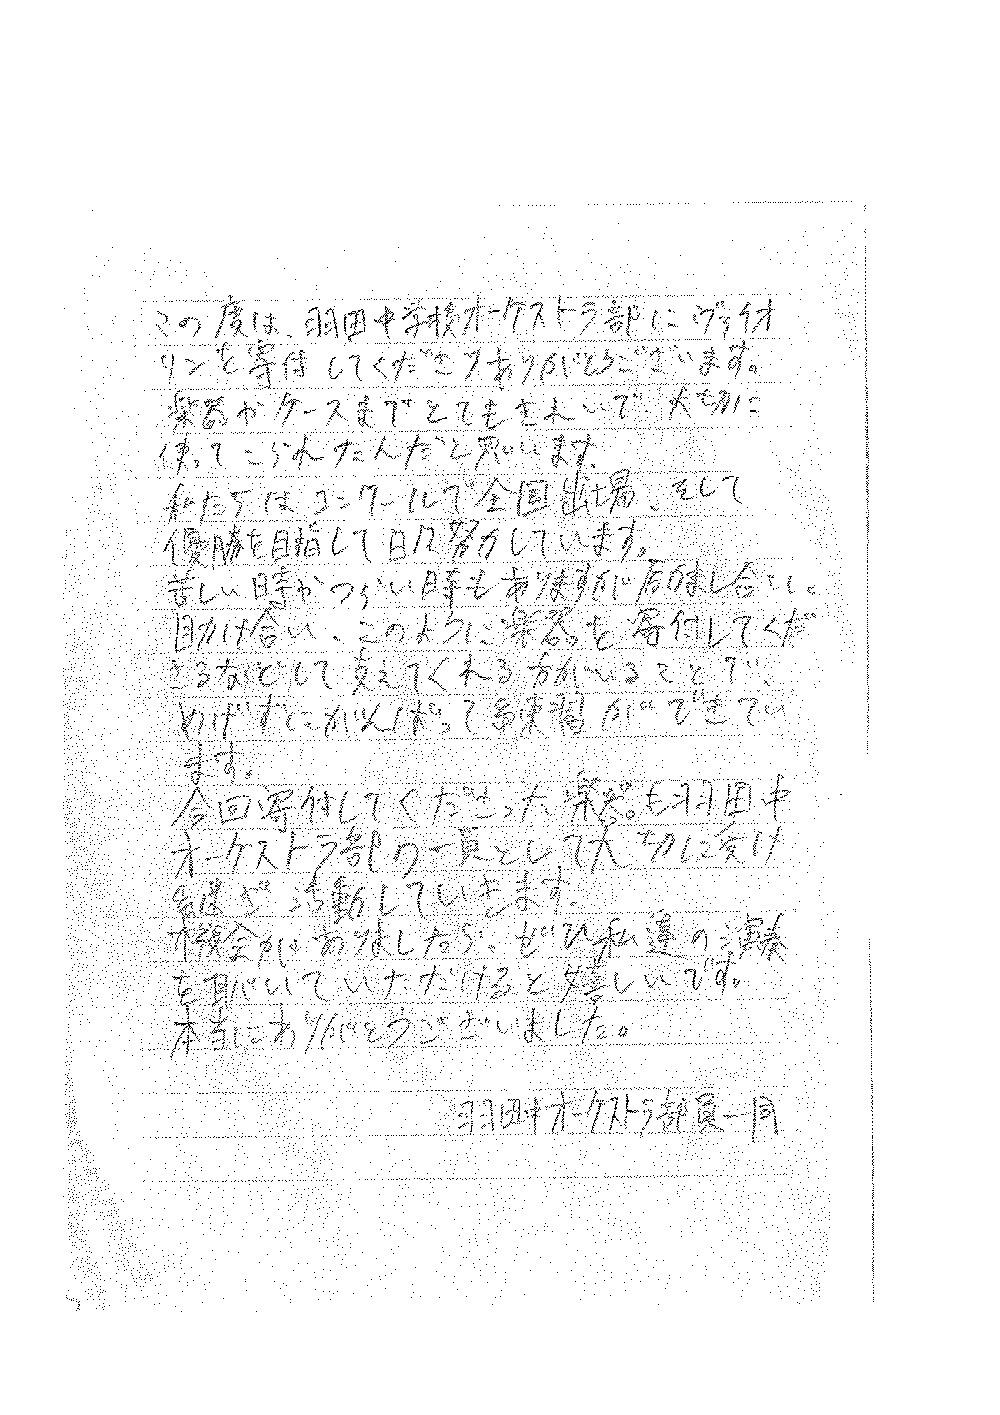 この度は、羽田中学校オーケストラ部にヴァイオ
リンを寄付してくださりありがとうございます。
楽器がケースまでとてもきれいで、大切に
使ってこられたんだと思います。
私たちはコンクールで全国出場、そして
優勝を目指して日々努力しています。
苦しい時やつらい時もありますが励まし合い、
助け合い、このように楽器を寄付してくだ
さるなどして支えてくれる方がいることで、
めげずにがんばって練習ができてい
ます。
今回寄付してくださった楽器も羽田中
オーケストラ部の一員として大切に受け
継ぎ活動していきます。
機会がありましたら、ぜひ私達の演奏
を聴いていただけると嬉しいです。
本当にありがとうございました。
羽田中オーケストラ部員一同